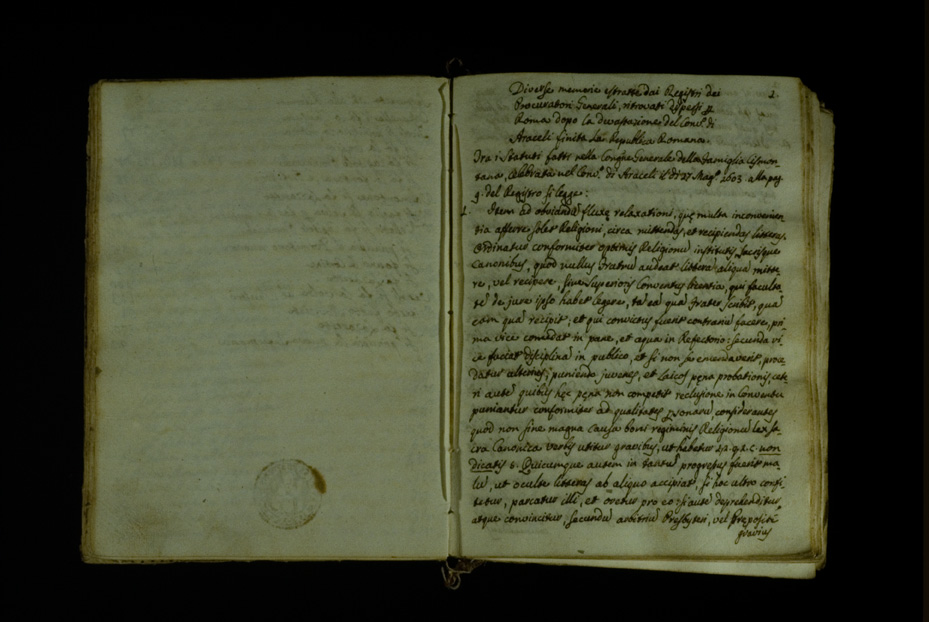 1
Diverse memorie estratte dai Registri dei
Procuratori Generali, ritrovati dispersi p
Roma dopo la devastazione del Conv.º di
Araceli finita la Republica Romana.
Tra i Statuti fatti nella Congñe Generale della famiglia Cismon-
tana, celebrata nel Conv.º di Araceli il dì 27 Magº 1603 alla pag
9. del Registro si legge:
1. Item ad obviandũ fluxę relaxationi, quę multa inconvenien-
tia afferre solet Religioni, circa mittendas, et recipiendas litteras.
Ordinatur conformiter optimis Religionũ institutis, sacrisque
Canonibus, quod nullus Fratrũ audeat litterã aliquã mitte-
re, vel recipere, sine Superioris Conventus licentia, qui faculta-
tẽ de jure ipso habet legere, tã eã quã Frater scribit, quã
eam quã recipit; et qui convictus fuerit contrariũ facere, pri-
ma vice comedat in pane, et aqua in Refectorio: secunda vi-
ce faciat disciplinã in publico, et si non se emendaverit, proce-
datur ulterius; puniendo juvenes, et Laicos pęna probationis, cęte-
ri autẽ quibus hęc pęna non competit reclusione in Conventu
puniantur conformiter ad qualitates psonarũ, considerantes
quod non sine magna causa boni regiminis Religionũ lex sa-
cra Canonica verbis utitur gravibus, ut habetur q. 2. C. non
dicatis &. Quicumque autem in tantũ progressus fuerit ma-
lũ, ut occulte litteras ab aliquo accipiat, si hoc ultro confi-
tetur, parcatur illi, et oretur pro eo: si autẽ deprehenditur,
atque convincitur, secundũ arbitriũ Presbyteri, vel Prepositi
gravius